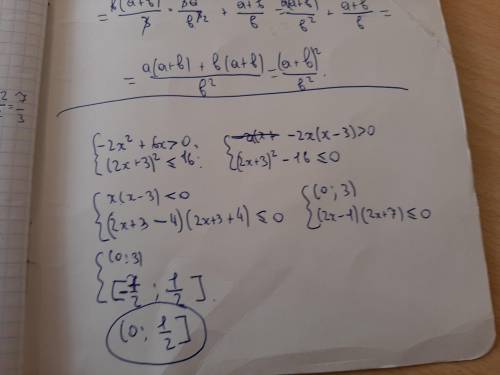 = b(a+b)/b · ba/b² + a+b/b = a(a+b)/b² + a+b/b =
= a(a+b) + b(a+b)/b² = (a+b)²/b².
{-2x² + 6x > 0, (2x+3)² ≤ 16; { -2x(x-3) > 0 (2x+3)² - 16 ≤ 0
{x(x-3) < 0 (2x+3-4)(2x+3+4) ≤ 0 { (0;3) (2x-1)(2x+7) ≤ 0
{(0;3) [-7/2; 1/2].
(0; 1/2]
7/3